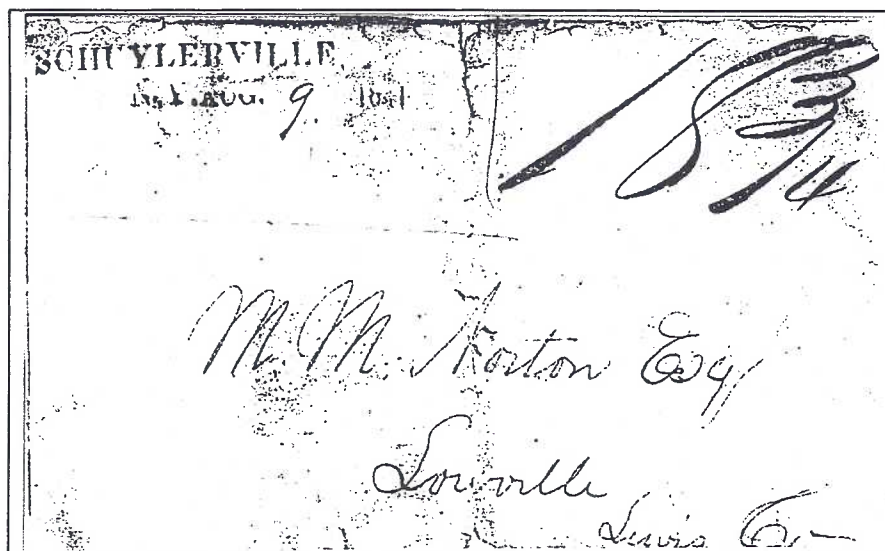 SCHUYLERVILLE,
AUG. 9.
18 3/4
M. M. Norton Esq
Lowville
Lewis Co